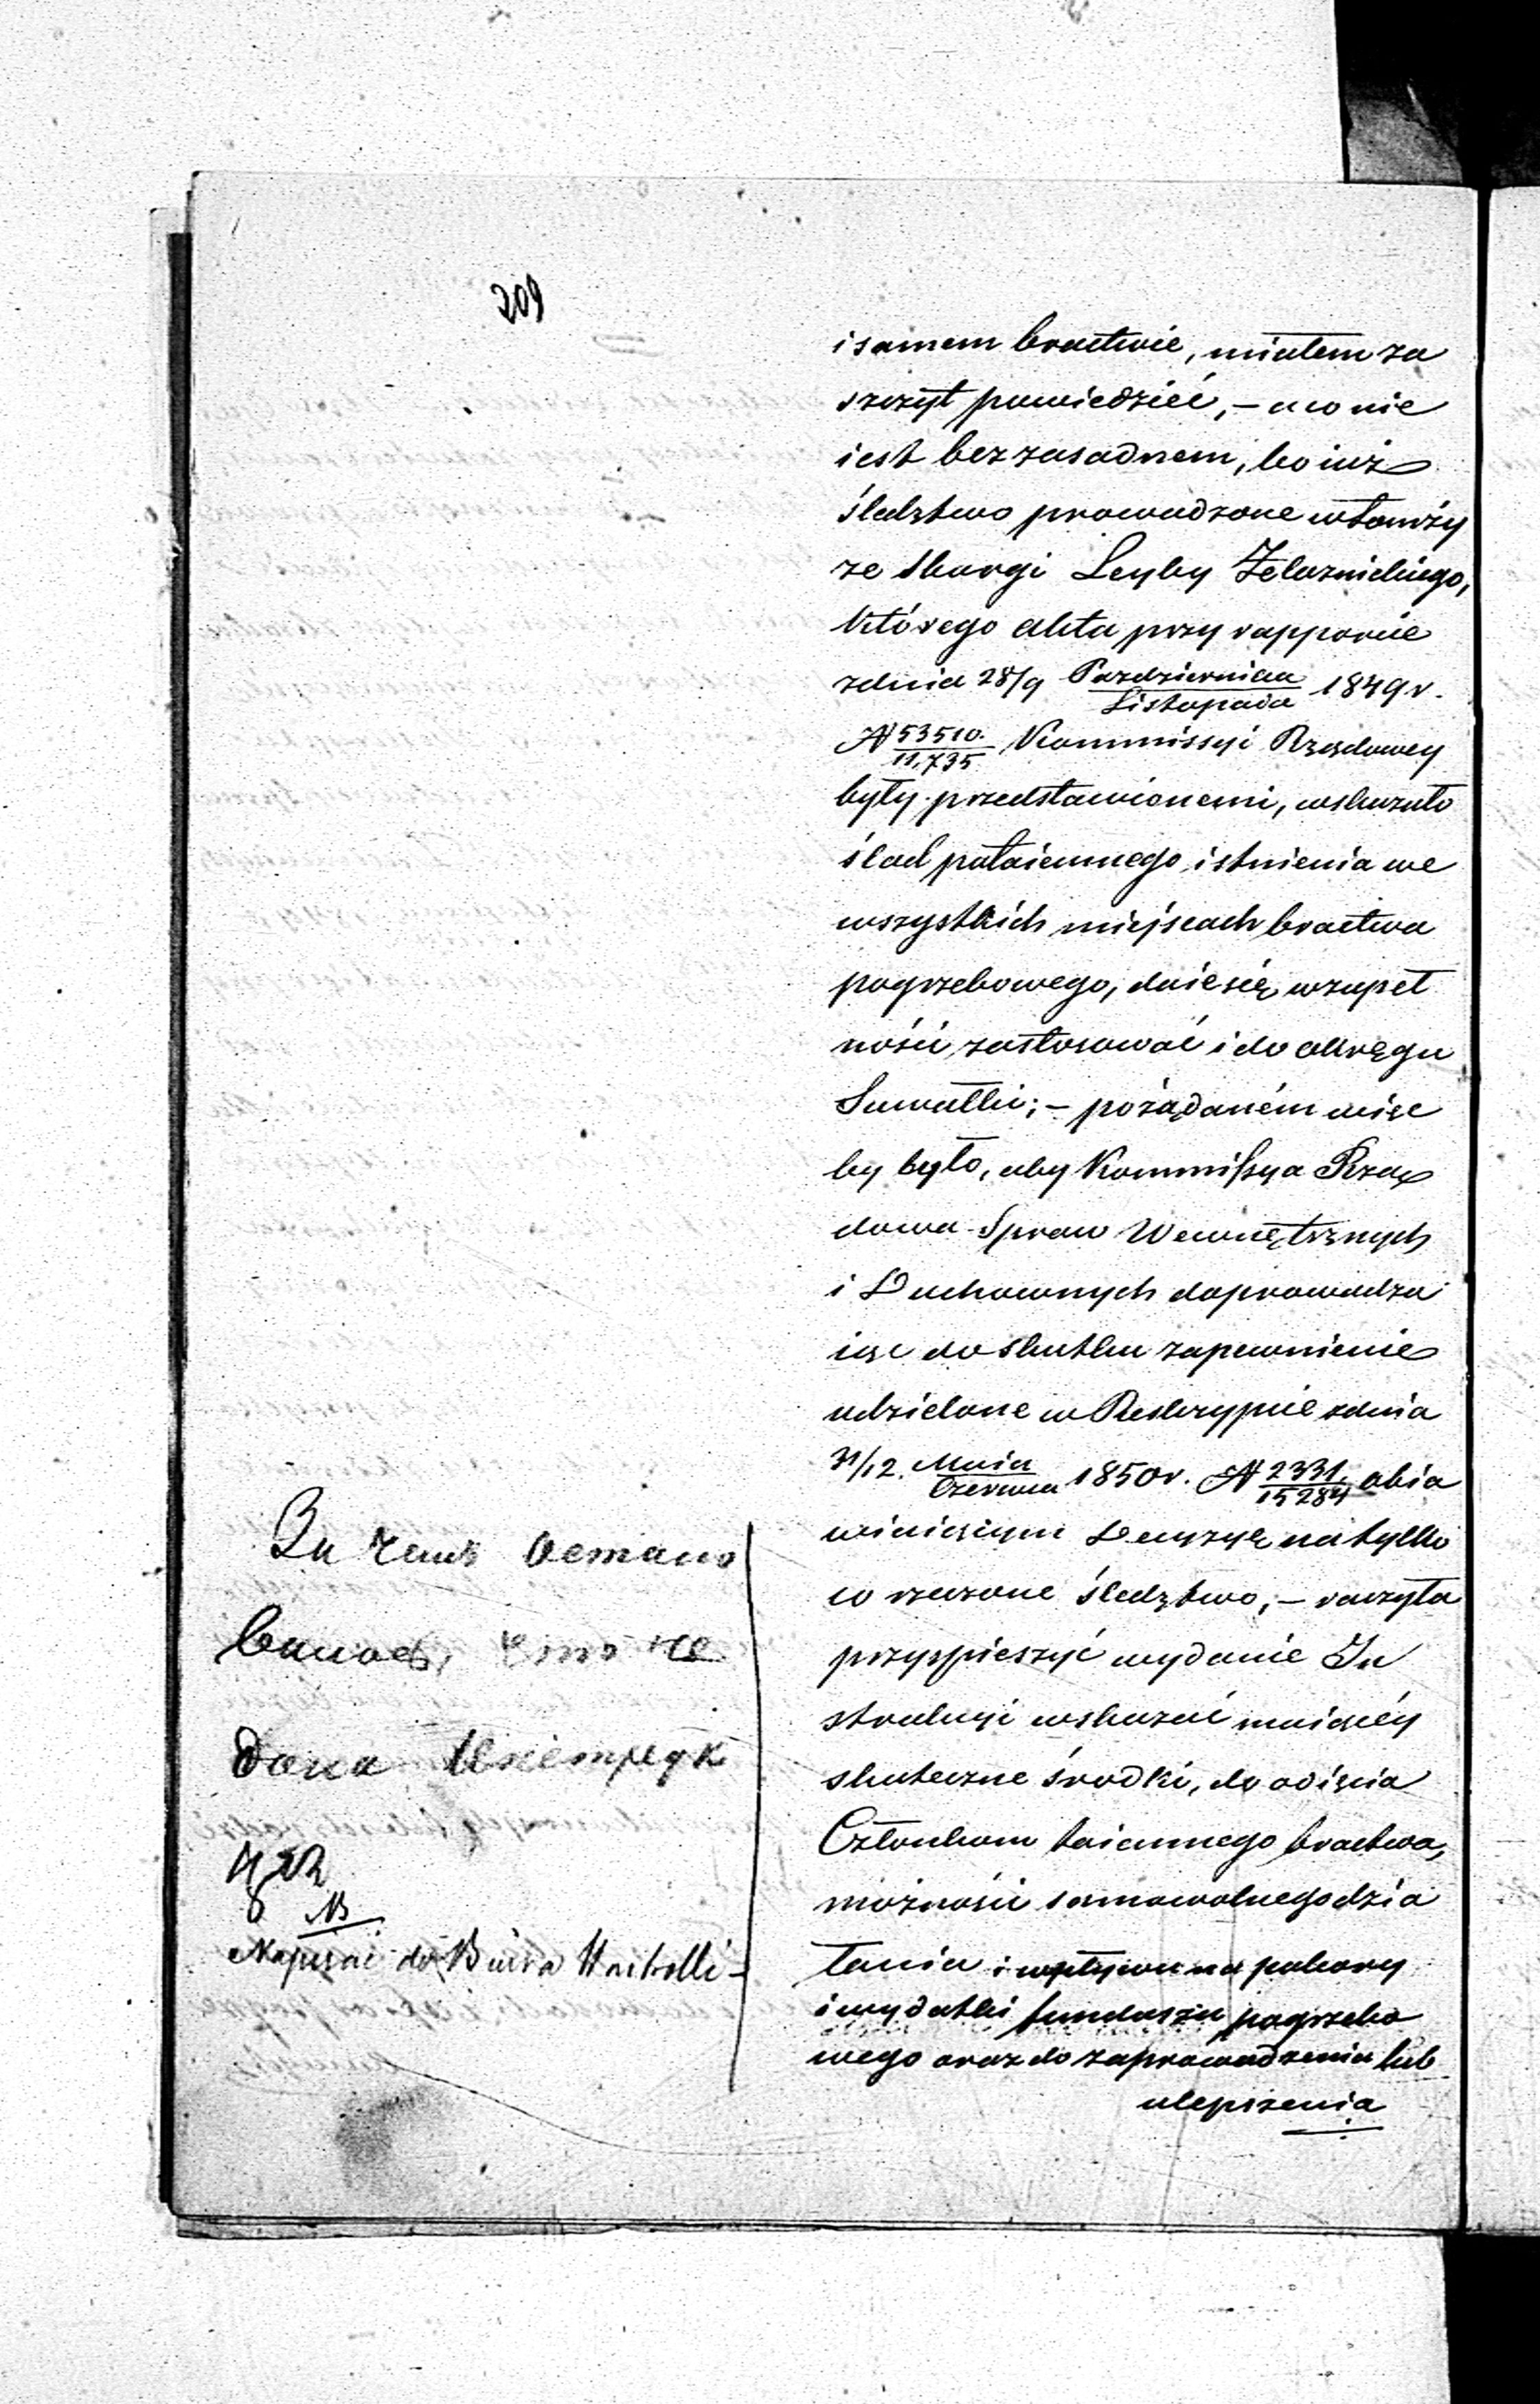 209
i samem bractwie, miałem za
szczyt powiedzieć, – a co nie
iest bezzasadnem, bo iuż
śledztwo prowadzone w Łomży
ze skargi Leyby Żelaznickiego,
którego akta przy rapporcie
z dnia 28/9 Października/Listopada 1849 r.
N 53510./11,735 Kommissyi Rządowey
były przedstawionemi, wskazało
ślad potaiemnego istnienia we
wszystkich miejscach bractwa
pogrzebowego, daie się w zupeł
ności zastosować i do okręgu
Suwałki; – pożądaném więc
by było, aby Kommissya Rzą
dowa Spraw Wewnętrznych
i Duchownych doprowadza
iąc do skutku zapewnienie
udzielone w Reskrypcie z dnia
31/12. Maia/Czerwca 1850 r. N 2331,/15284 obia
wiaiącym Decyzyę na tylko
co rzeczone śledztwo, – raczyła
przyspieszyć wydanie In
strukcyi wskazać maiącéy
skuteczne środki, do odięcia
Członkom taiemnego bractwa,
możności samowolnego dzia
łania i wpływu na pobory
i wydatki funduszu pogrzebo
wego oraz do zaprowadzenia lub
ulepszenia
Napisać do Biura